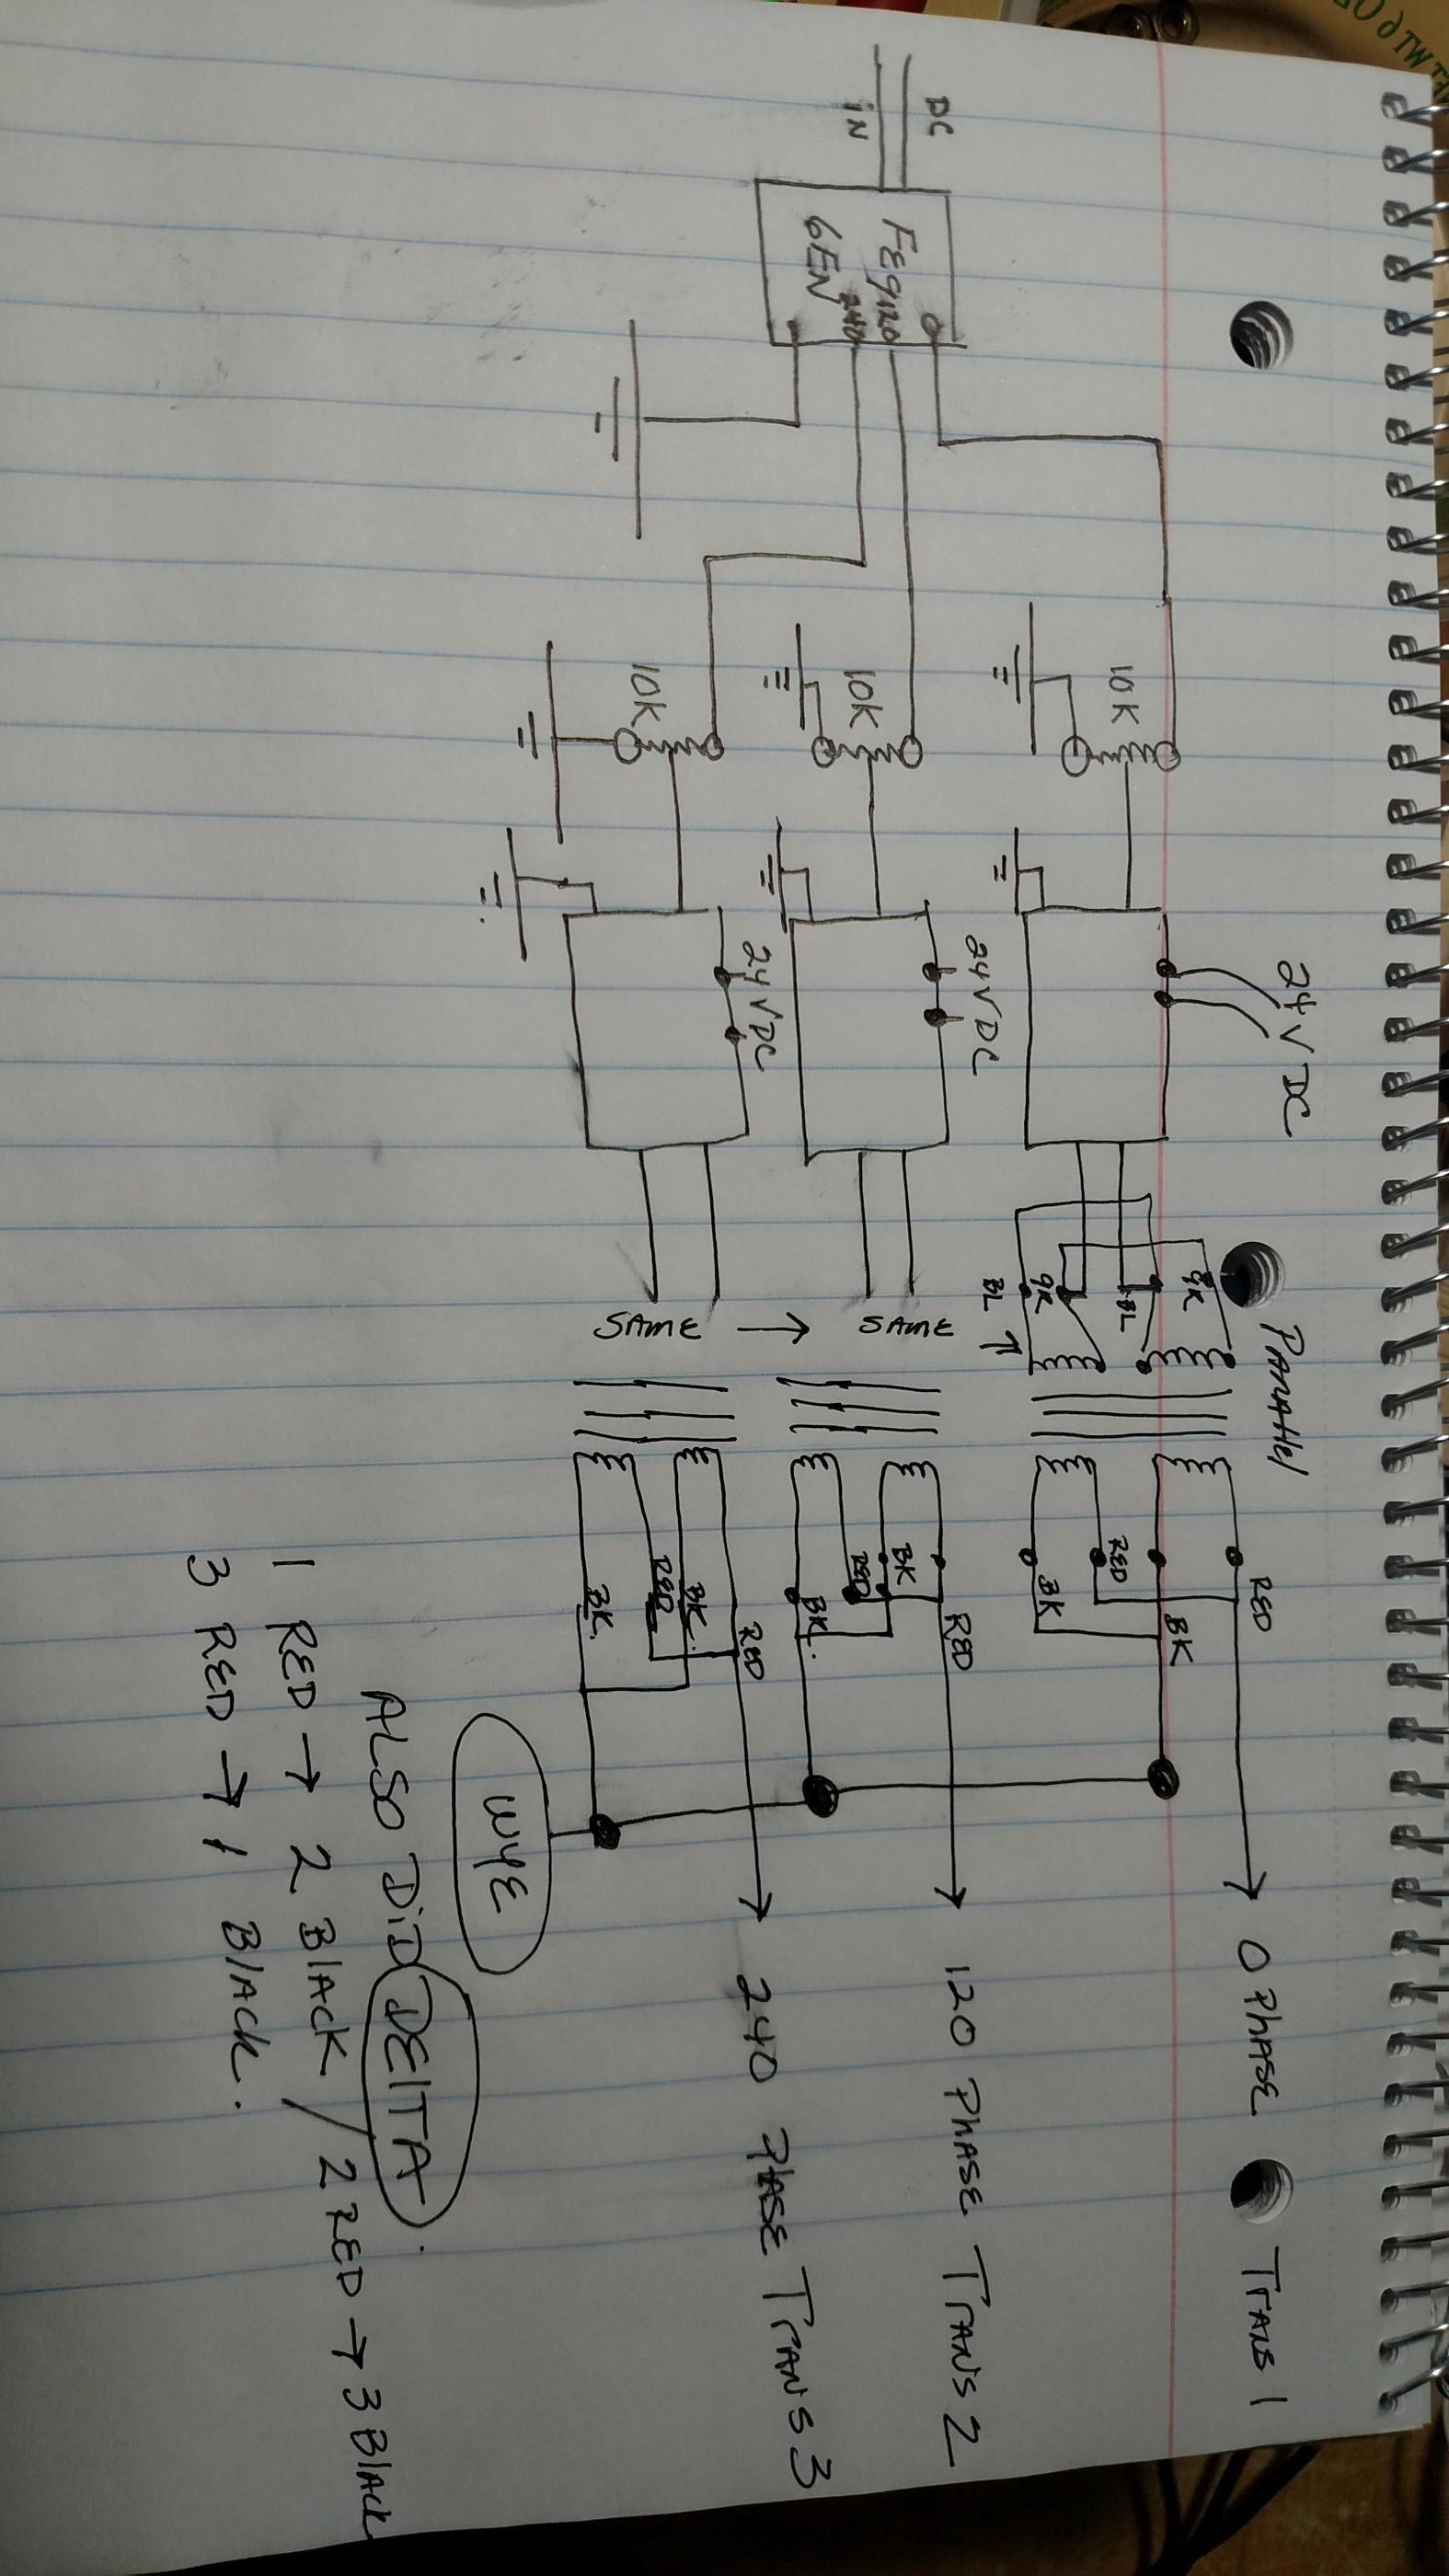 DC
IN
FEq
GEN
0
120
240
10K
10K
10K
24V DC
24V DC
24V DC
PArAllEl
GR
BL
GR
BL
SAME → SAME
RED
BK
RED
BK
RED
BK
RED
BK.
RED
BK.
RED
BK.
0 PhASE TrANS 1
120 PhASE TrANS 2
240 PhASE TrANS 3
WYE
ALSO DiD DElTA.
1 RED → 2 BlACK / 2 RED → 3 BlAck
3 RED → 1 BlACk.